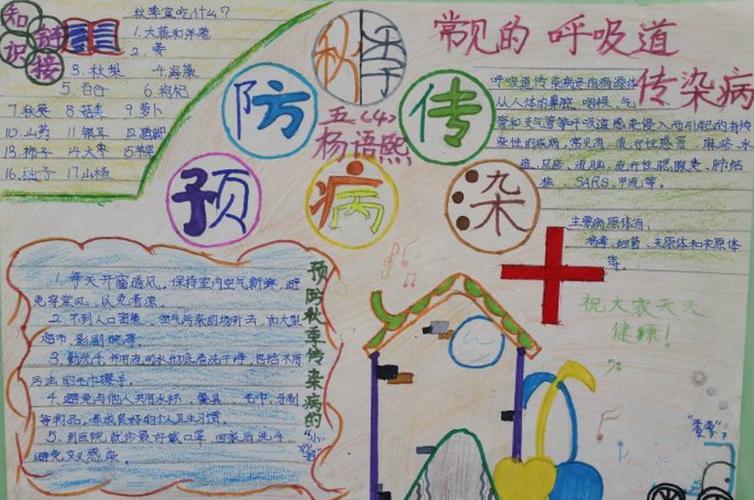 知识
链接
秋季宜吃什么？
1.大蒜和洋葱
2.
3.秋梨 4.海藻
5.百合 6.枸杞
7.秋葵 8.菇类 9.萝卜
10.山药 11.银耳
13.柿子 14.大枣 15.苹果
16.柚子 17.山楂
秋季
防 传
预 病 染
五〈4〉
杨语熙
常见的 呼吸道
传染病
呼吸道传染病是指病源体
从人体的鼻腔、咽喉、气
管和支气管等呼吸道感染侵入而引起的有传
染性的疾病，常见有：流行性感冒、麻疹、水
痘、风疹、流脑、流行性腮腺炎、肺结
核、SARS、甲流等。
主要病原体有：
病毒、细菌、支原体和衣原体
等。
祝大家天天
健康！
预防秋季传染病的
1.每天开窗通风，保持室内空气新鲜，避
免穿堂风，以免着凉。
2.不到人口密集、空气污染的场所去，如大型
超市、影剧院等。
3.勤洗手，并用流动水彻底清洗干净，包括不用
污浊的毛巾擦手。
4.避免与他人共用水杯、餐具、毛巾、牙刷
等物品，养成良好的个人卫生习惯。
5.到医院就诊最好戴口罩，回家后洗手，
避免交叉感染。